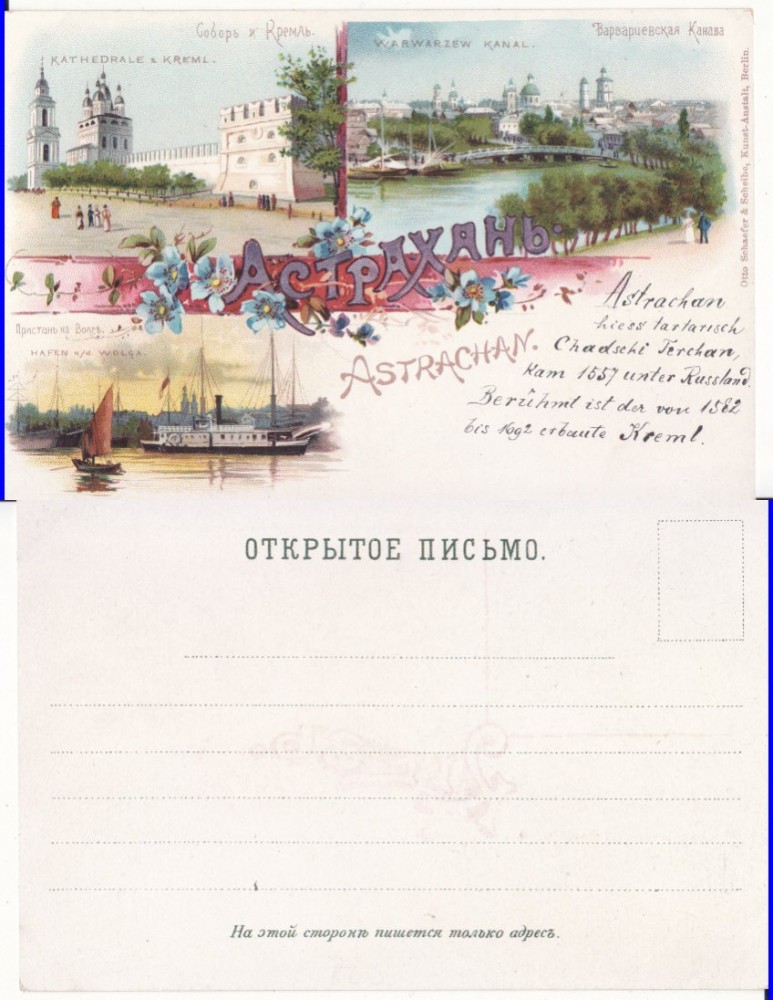 Соборъ и Кремль.
KATHEDRALE & KREML.
WARWARZEW KANAL.
Варвариевская Канава
Otto Schaefer & Scheibe, Kunst-Anstalt, Berlin.
АСТРАХАНЬ.
Пристань на Волгѣ.
HAFEN a/d. WOLGA.
ASTRACHAN.
Astrachan
hiess tartarisch
Chadschi Terchan,
kam 1557 unter Russland.
Berühmt ist der von 1582
bis 1692 erbaute Kreml.
ОТКРЫТОЕ ПИСЬМО.
На этой сторонѣ пишется только адресъ.